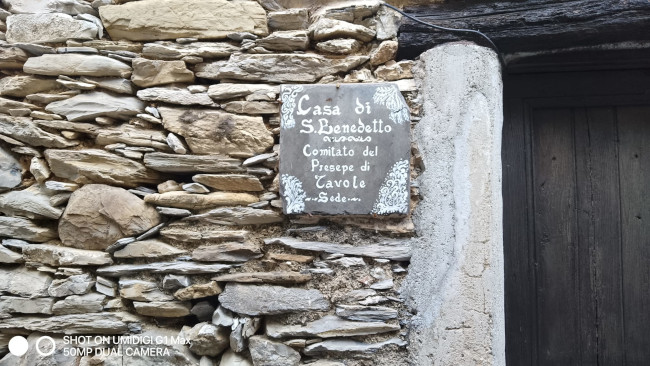 Casa di
S. Benedetto
Comitato del
Presepe di
Tavole
Sede
SHOT ON UMIDIGI G1 Max
50MP DUAL CAMERA